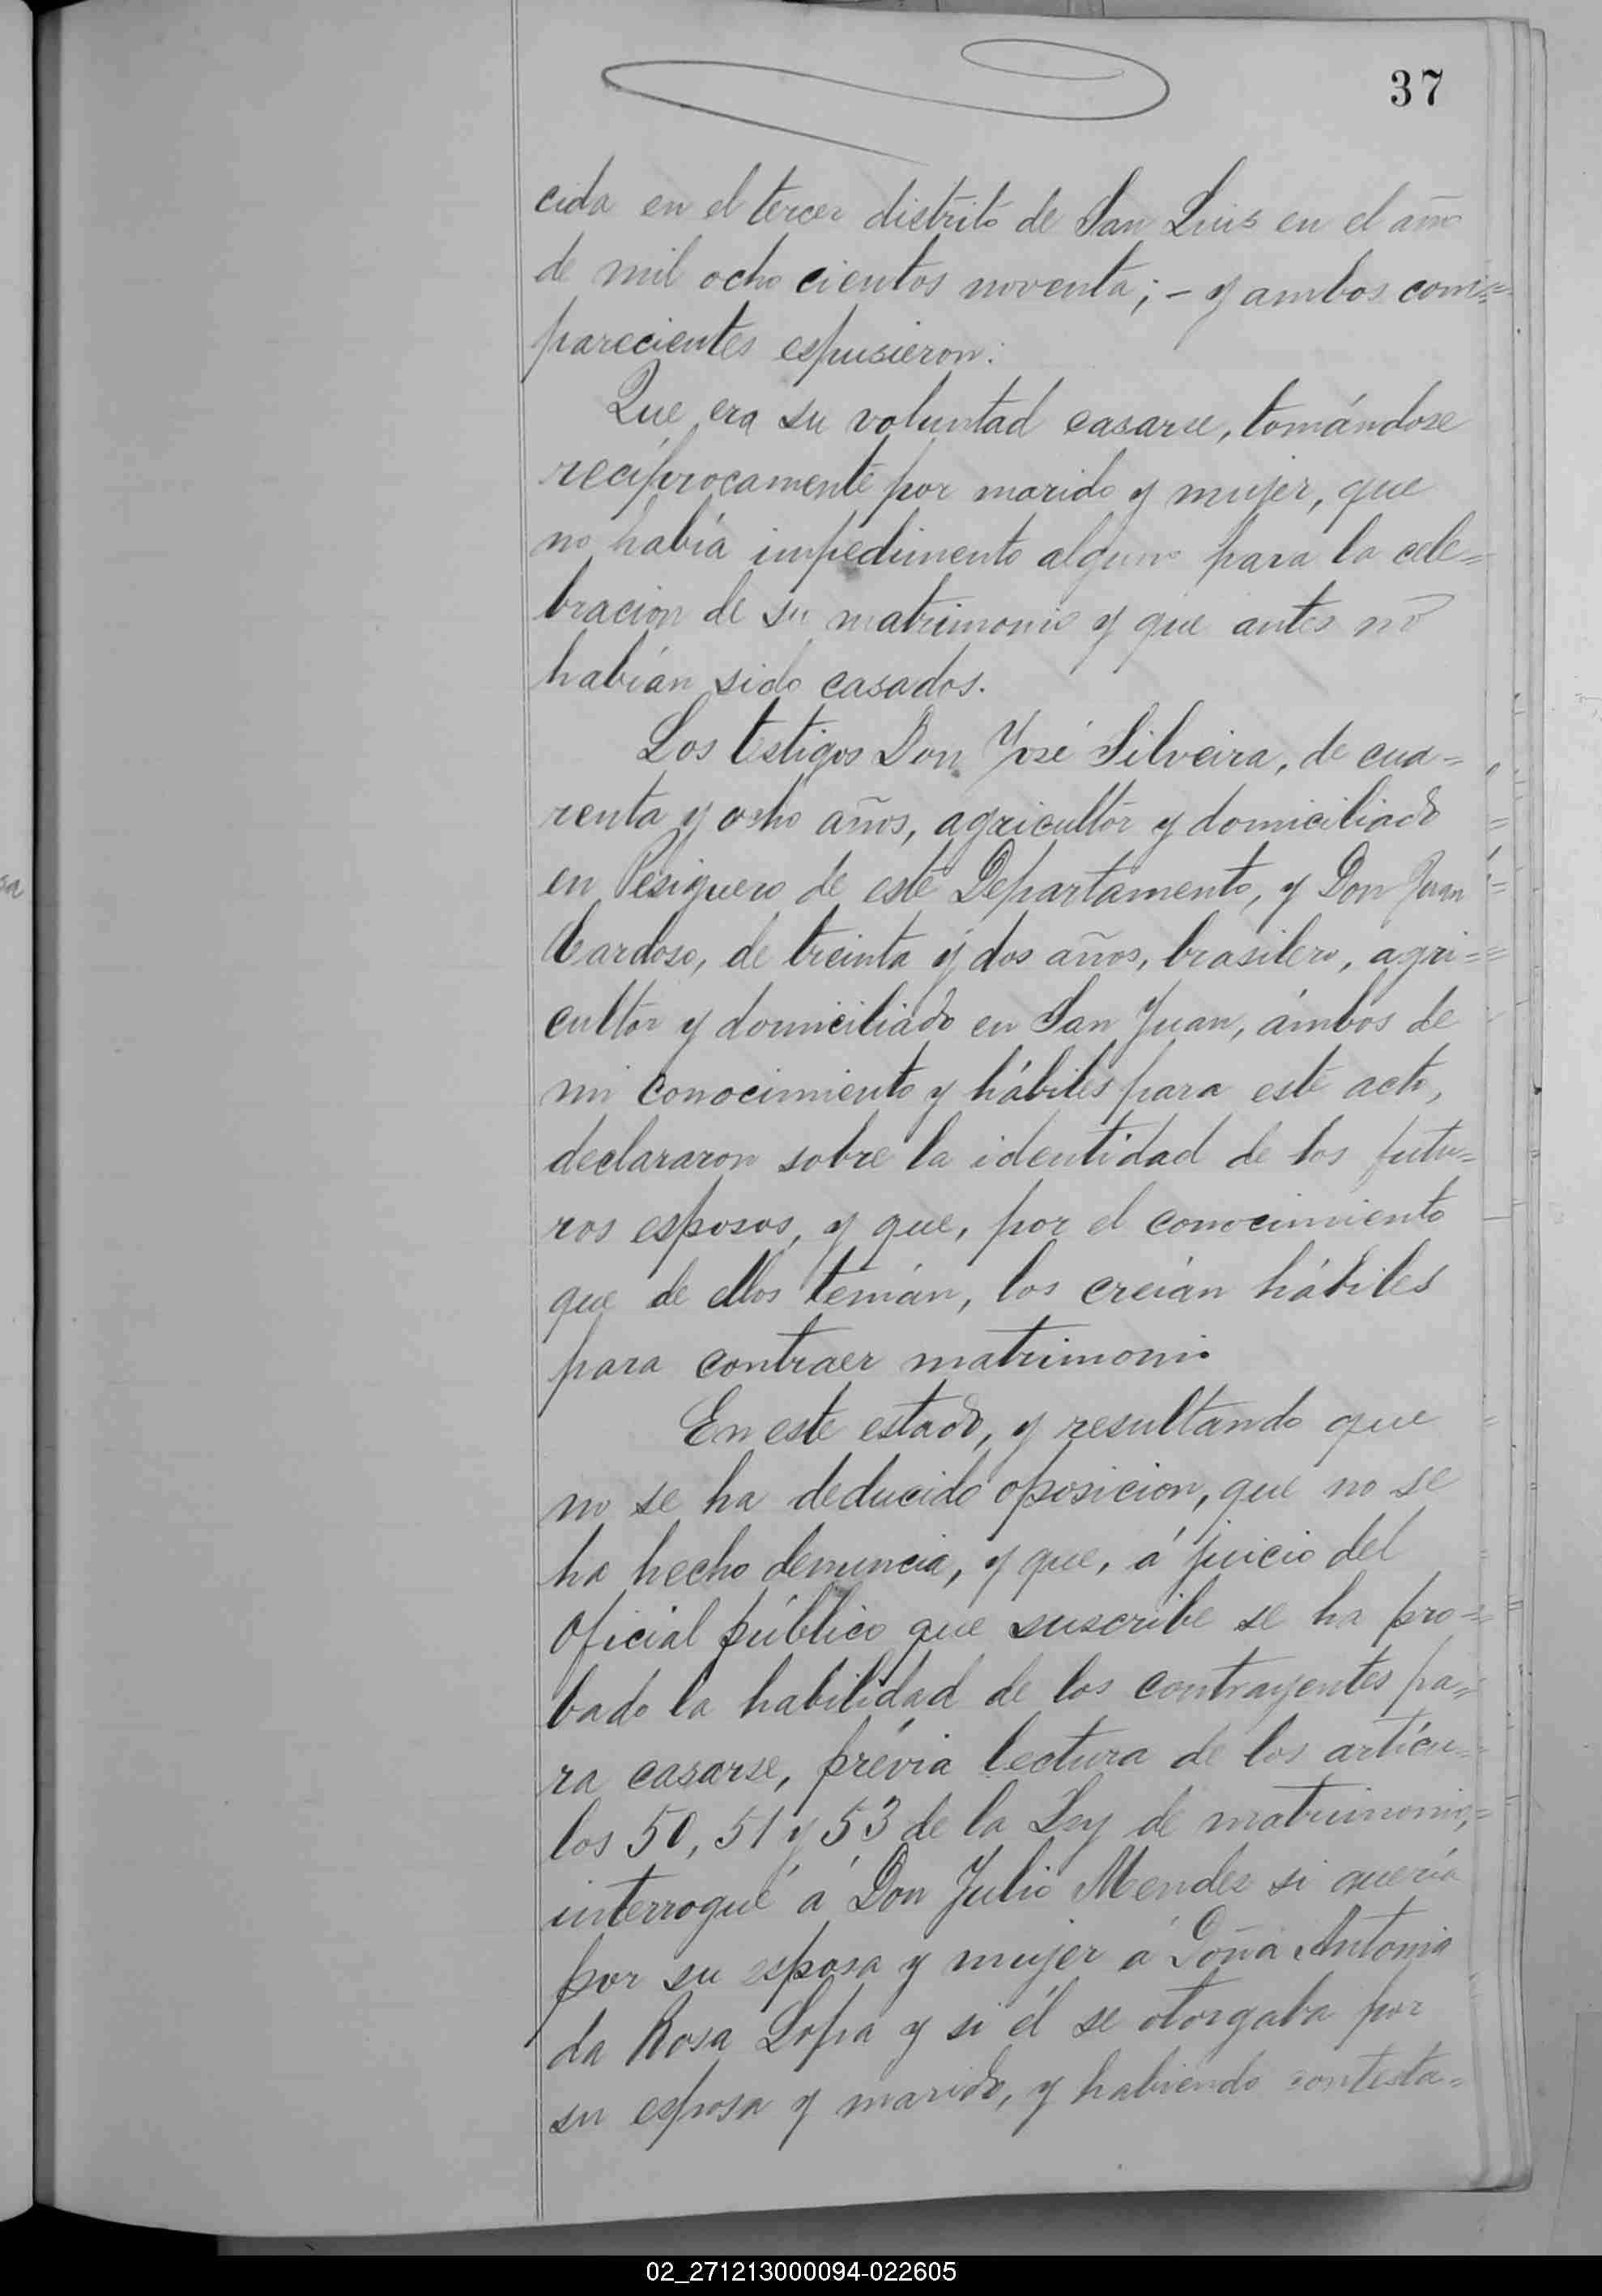 37
cida en el tercer distrito de San Luis en el año
de mil ocho cientos noventa; - y ambos com=
parecientes espusieron:
Que era su voluntad casarse, tomándose
recíprocamente por marido y mujer, que
no había impedimento alguno para la cele=
bracion de su matrimonio y que antes no
habían sido casados.
Los testigos Don José Silveira, de cua=
renta y ocho años, agricultor y domiciliado
en Pesiguero de este Departamento, y Don Juan
Cardoso, de treinta y dos años, brasilero, agri=
cultor y domiciliado en San Juan, ámbos de
mi conocimiento y hábiles para este acto,
declararon sobre la identidad de los futu=
ros esposos, y que, por el conocimiento
que de ellos tenían, los creían hábiles
para contraer matrimonio
En este estado, y resultando que
no se ha deducido oposicion, que no se
ha hecho denuncia, y que, á juicio del
Oficial público que suscribe se ha pro=
bado la habilidad de los contrayentes pa=
ra casarse, prévia lectura de los artícu=
los 50, 51 y 53 de la Ley de matrimonio,
interrogué á Don Julio Mendez si quería
por su esposa y mujer á Doña Antonia
da Rosa Lopa y si él se otorgaba por
su esposa y marido, y habiendo contesta=
sa
02_271213000094-022605